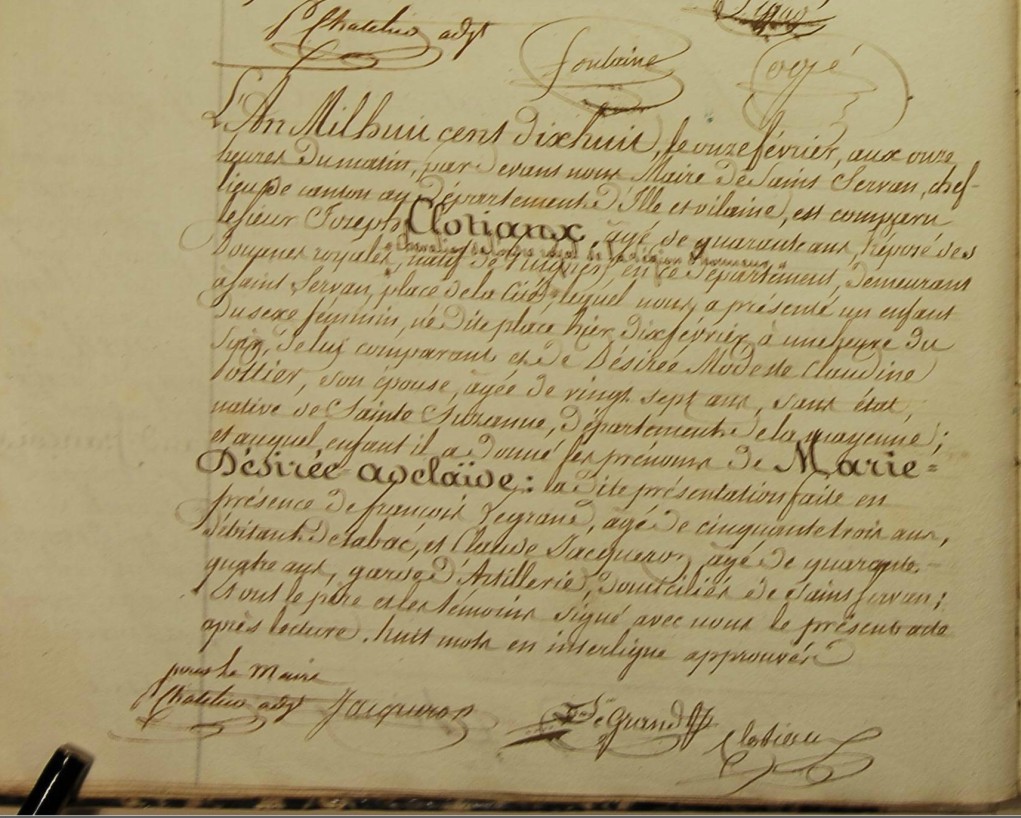 Chatelier adjt
Fontaine
L'An Mil huit cent dix huit, le onze février, aux onze
heures du matin, par devant nous Maire de Saint Servan, chef-
lieu de canton au Département d'Ille et vilaine, est comparu
le sieur Joseph Clotiaux, âgé de quarante ans, préposé des
Chevalier de l'ordre royal de la Légion d'honneur
Douanes royales, natif de en ce Département, demeurant
à Saint Servan, place de la Cité, lequel nous a présenté un enfant
du sexe féminin, né dite place hier dix février à une heure du
soir, de lui comparant et de Désirée Modeste Claudine
Pottier, son épouse, agée de vingt sept ans, sans état,
native de Sainte Suzanne, Département de la mayenne ;
et auquel enfant il a donné les prénoms de Marie=
Désirée adelaïde : la dite présentation faite en
présence de françois Legrand, agé de cinquante trois ans,
débitant de tabac, et Claude Jacqueron, agé de quarante-
quatre ans, garde d'Artillerie, domiciliés de Saint Servan ;
et ont le père et les témoins signé avec nous le présent acte
après lecture. huit mots en interligne approuvés
pour le Maire
Chatelier adjt Jacqueron
Legrand
Clotiaux